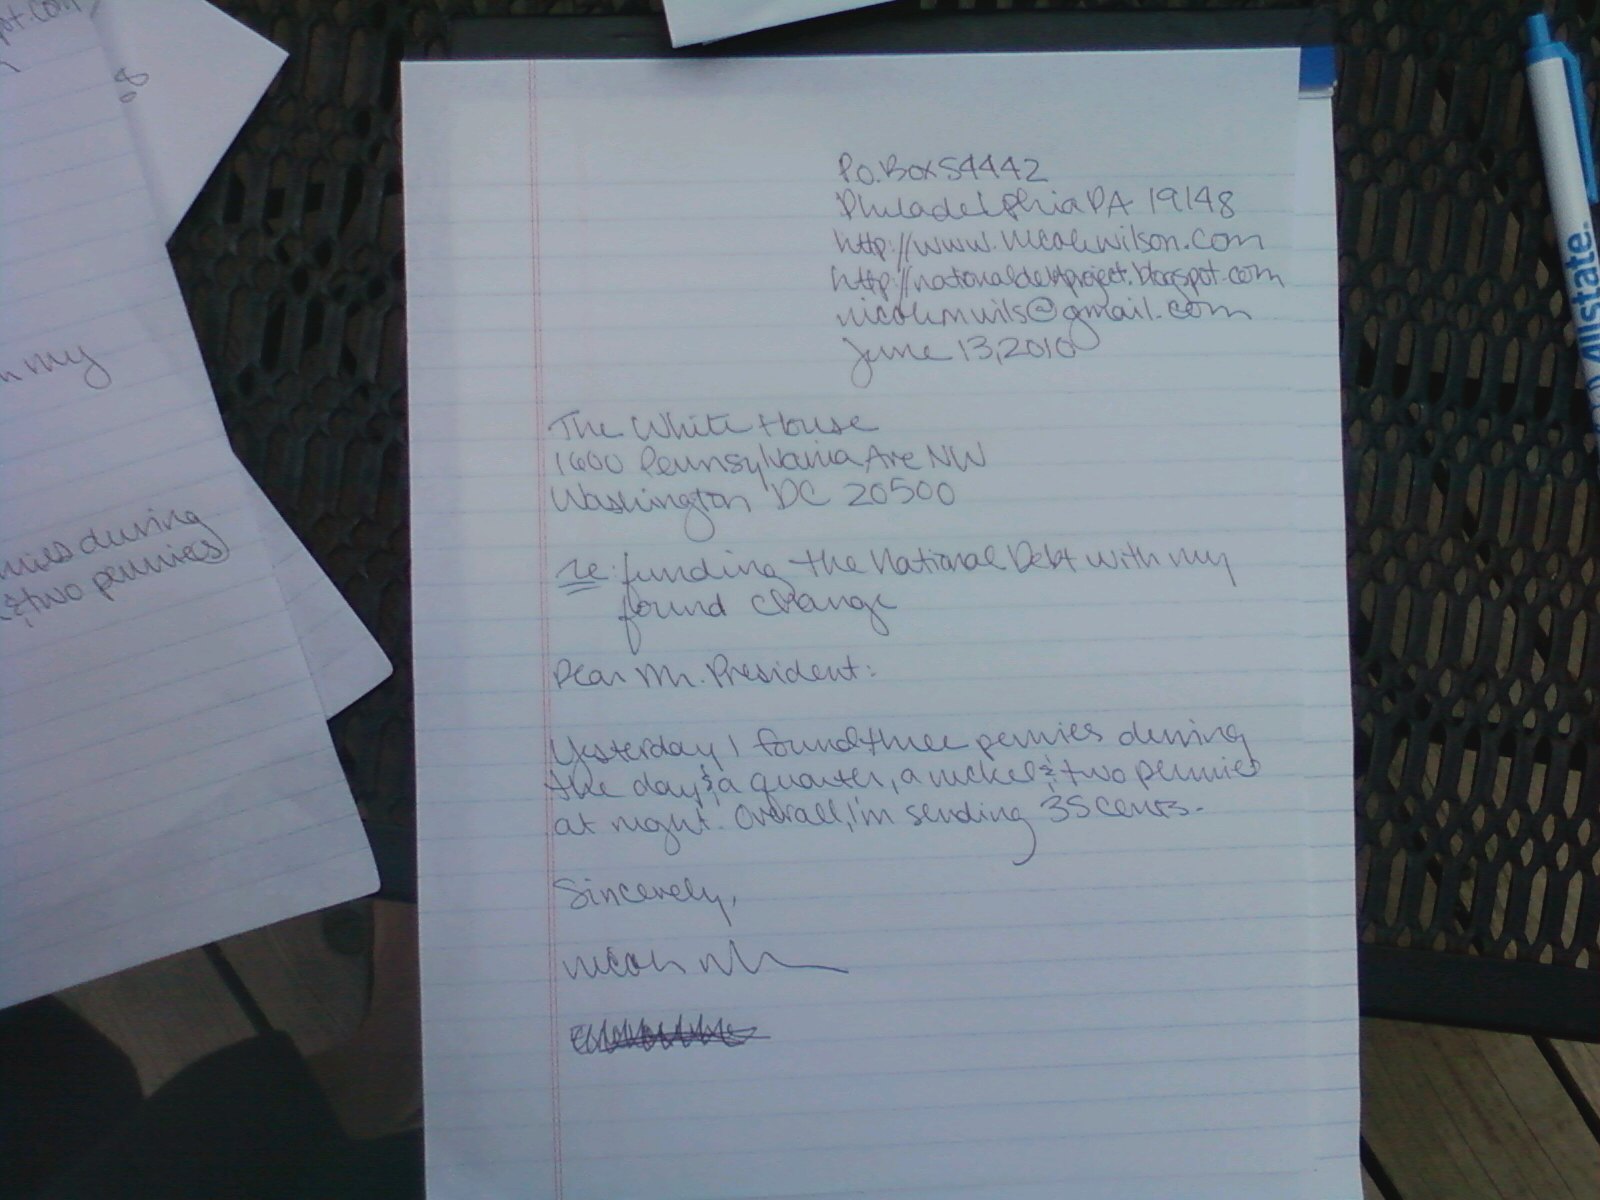 P.O. Box 54442
Philadelphia PA 19148
http://www.nicolewilson.com
http://nationaldebtproject.blogspot.com
nicolemwils@gmail.com
June 13, 2010
The White House
1600 Pennsylvania Ave NW
Washington DC 20500
re: funding the National Debt with my
found change
Dear Mr. President:
Yesterday I found three pennies during
the day & a quarter, a nickel & two pennies
at night. Overall, I'm sending 35 cents.
Sincerely,
my
during
& two pennies
Allstate.